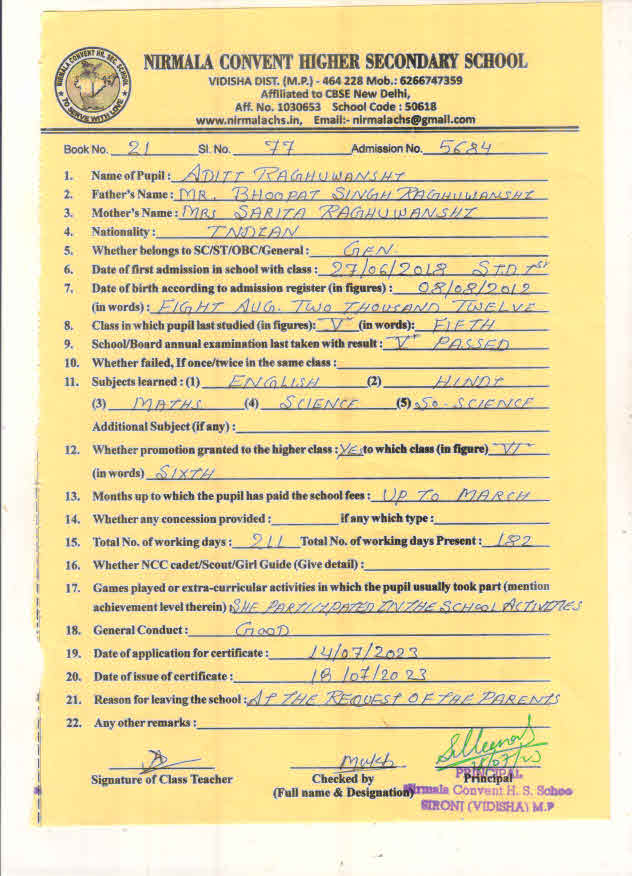 NIRMALA CONVENT HR. SEC. SCHOOL
TO SERVE WITH LOVE
NIRMALA CONVENT HIGHER SECONDARY SCHOOL
VIDISHA DIST. (M.P.) - 464 228 Mob.: 6266747359
Affiliated to CBSE New Delhi,
Aff. No. 1030653 School Code : 50618
www.nirmalachs.in, Email:- nirmalachs@gmail.com
Book No. 21 Sl. No. 77 Admission No. 5684
1. Name of Pupil : ADITI RAGHUWANSHI
2. Father's Name : MR. BHOOPAT SINGH RAGHUWANSHI
3. Mother's Name : MRS SARITA RAGHUWANSHI
4. Nationality : INDIAN
5. Whether belongs to SC/ST/OBC/General : GEN.
6. Date of first admission in school with class : 27/06/2018 STD Ist
7. Date of birth according to admission register (in figures) : 08/08/2012
(in words) : EIGHT AUG. TWO THOUSAND TWELVE
8. Class in which pupil last studied (in figures): V (in words): FIFTH
9. School/Board annual examination last taken with result : V PASSED
10. Whether failed, If once/twice in the same class :
11. Subjects learned : (1) ENGLISH (2) HINDI
(3) MATHS (4) SCIENCE (5) SO-SCIENCE
Additional Subject (if any) :
12. Whether promotion granted to the higher class : Yes to which class (in figure) VI
(in words) SIXTH
13. Months up to which the pupil has paid the school fees : UP TO MARCH
14. Whether any concession provided : if any which type :
15. Total No. of working days : 211 Total No. of working days Present : 182
16. Whether NCC cadet/Scout/Girl Guide (Give detail) :
17. Games played or extra-curricular activities in which the pupil usually took part (mention
achievement level therein) SHE PARTICIPATED IN THE SCHOOL ACTIVITIES
18. General Conduct : GOOD
19. Date of application for certificate : 14/07/2023
20. Date of issue of certificate : 18/07/2023
21. Reason for leaving the school : AT THE REQUEST OF THE PARENTS
22. Any other remarks :
18/07/23
Signature of Class Teacher Checked by Principal
(Full name & Designation)
PRINCIPAL
Nirmala Convent H. S. Schoo
SIRONJ (VIDISHA) M.P